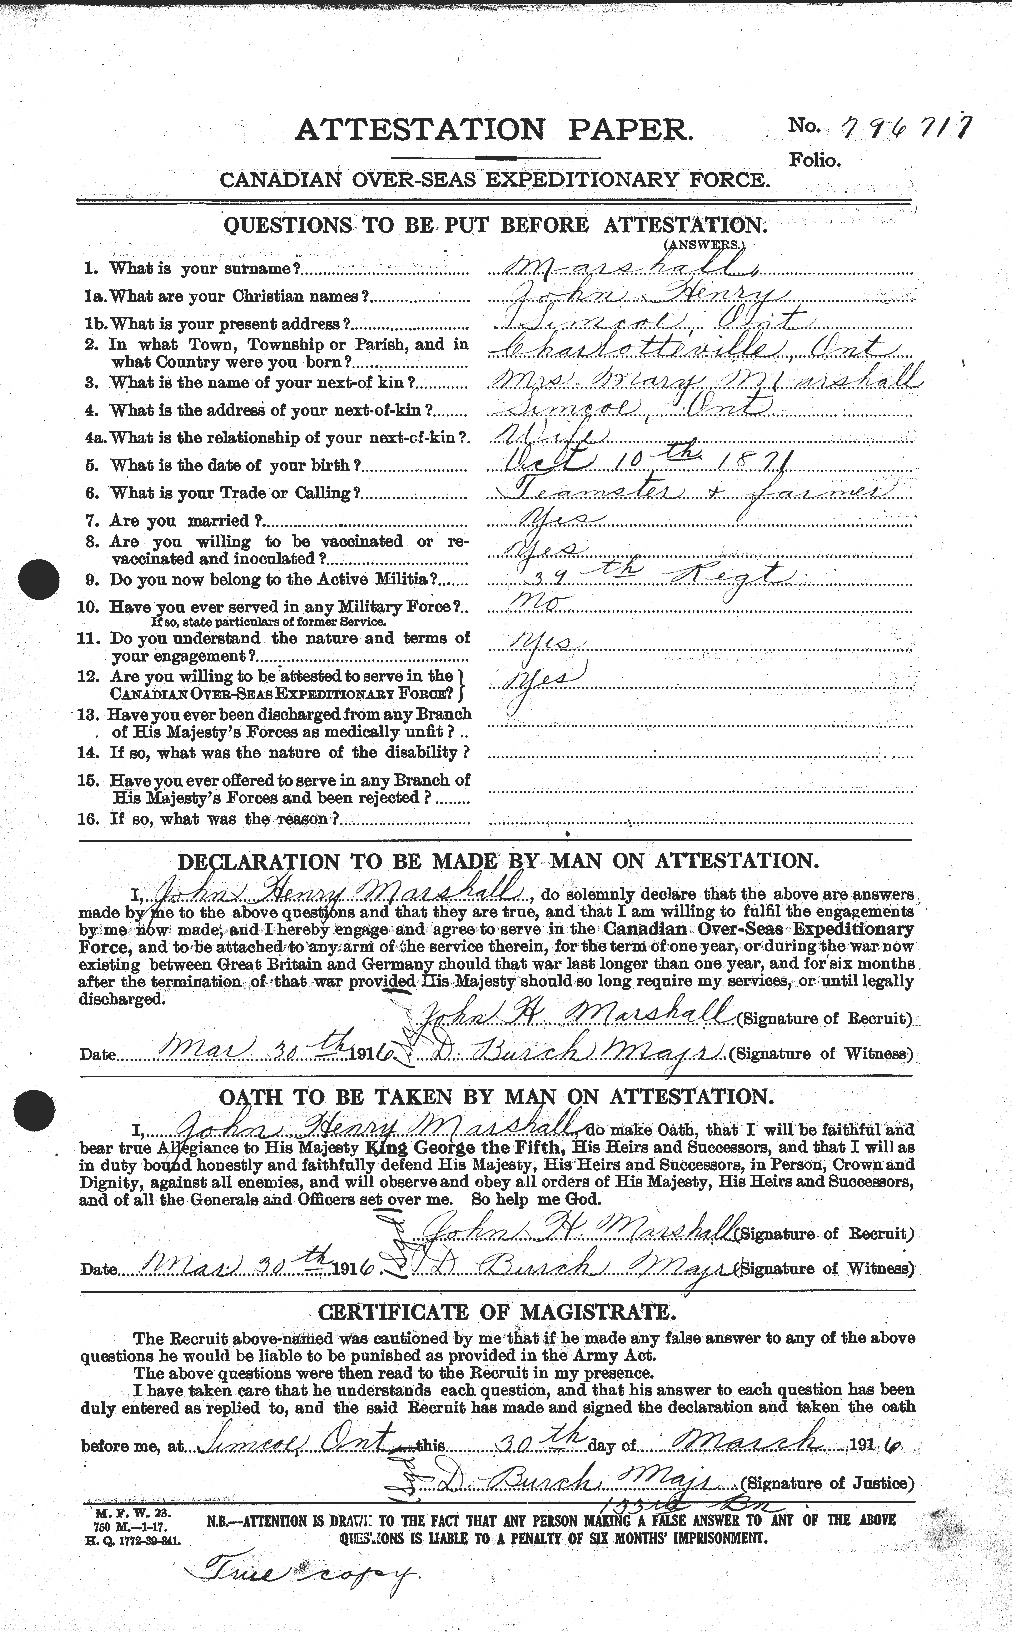 ATTESTATION PAPER.
No. 796717
Folio.
CANADIAN OVER-SEAS EXPEDITIONARY FORCE.
QUESTIONS TO BE PUT BEFORE ATTESTATION.
(ANSWERS.)
1. What is your surname?.......... Marshall
1a. What are your Christian names?.......... John Henry
1b. What is your present address?.......... Simcoe, Ont
2. In what Town, Township or Parish, and in
what Country were you born?.......... Charlotteville, Ont
3. What is the name of your next-of kin?.......... Mrs. Mary Marshall
4. What is the address of your next-of-kin?....... Simcoe, Ont
4a. What is the relationship of your next-of-kin?. Wife
5. What is the date of your birth?.......... Oct 10th 1871
6. What is your Trade or Calling?.......... Teamster + farmer
7. Are you married?.......... Yes
8. Are you willing to be vaccinated or re-
vaccinated and inoculated?.......... Yes
9. Do you now belong to the Active Militia?...... 39th Regt
10. Have you ever served in any Military Force?.. No
If so, state particulars of former Service.
11. Do you understand the nature and terms of
your engagement?.......... Yes
12. Are you willing to be attested to serve in the }
CANADIAN OVER-SEAS EXPEDITIONARY FORCE? } Yes
13. Have you ever been discharged from any Branch
of His Majesty's Forces as medically unfit? ..
14. If so, what was the nature of the disability?
15. Have you ever offered to serve in any Branch of
His Majesty's Forces and been rejected?........
16. If so, what was the reason?..........
DECLARATION TO BE MADE BY MAN ON ATTESTATION.
I, John Henry Marshall, do solemnly declare that the above are answers
made by me to the above questions and that they are true, and that I am willing to fulfil the engagements
by me now made, and I hereby engage and agree to serve in the Canadian Over-Seas Expeditionary
Force, and to be attached to any arm of the service therein, for the term of one year, or during the war now
existing between Great Britain and Germany should that war last longer than one year, and for six months
after the termination of that war provided His Majesty should so long require my services, or until legally
discharged.
(Sgd) John H. Marshall (Signature of Recruit)
Date Mar 30th 1916. D. Burch Majr. (Signature of Witness)
OATH TO BE TAKEN BY MAN ON ATTESTATION.
I, John Henry Marshall, do make Oath, that I will be faithful and
bear true Allegiance to His Majesty King George the Fifth, His Heirs and Successors, and that I will as
in duty bound honestly and faithfully defend His Majesty, His Heirs and Successors, in Person, Crown and
Dignity, against all enemies, and will observe and obey all orders of His Majesty, His Heirs and Successors,
and of all the Generals and Officers set over me. So help me God.
(Sgd) John H. Marshall (Signature of Recruit)
Date Mar 30th 1916. D Burch Majr (Signature of Witness)
CERTIFICATE OF MAGISTRATE.
The Recruit above-named was cautioned by me that if he made any false answer to any of the above
questions he would be liable to be punished as provided in the Army Act.
The above questions were then read to the Recruit in my presence.
I have taken care that he understands each question, and that his answer to each question has been
duly entered as replied to, and the said Recruit has made and signed the declaration and taken the oath
before me, at Simcoe Ont this 30th day of March 1916
(Sgd) D. Burch Majr. (Signature of Justice)
133rd Bn
M. F. W. 23.
750 M.—1-17.
H. Q. 1772-39-841.
N.B.—ATTENTION IS DRAWN TO THE FACT THAT ANY PERSON MAKING A FALSE ANSWER TO ANY OF THE ABOVE
QUESTIONS IS LIABLE TO A PENALTY OF SIX MONTHS' IMPRISONMENT.
True copy.